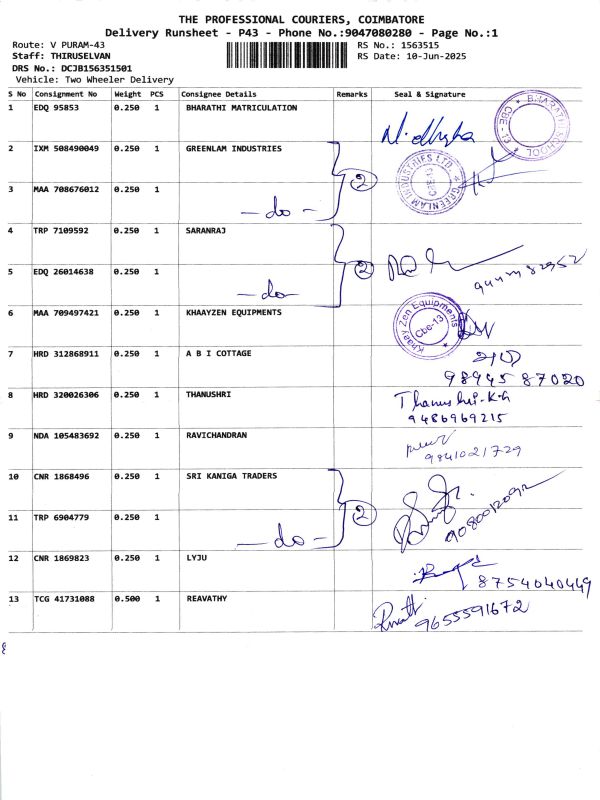 THE PROFESSIONAL COURIERS, COIMBATORE
Delivery Runsheet - P43 - Phone No.:9047080280 - Page No.:1
Route: V PURAM-43
RS No.: 1563515
Staff: THIRUSELVAN
RS Date: 10-Jun-2025
DRS No.: DCJB156351501
Vehicle: Two Wheeler Delivery
S No Consignment No Weight PCS Consignee Details Remarks Seal & Signature
1 EDQ 95853 0.250 1 BHARATHI MATRICULATION
BHARATHI SCHOOL * CBE-13 *
2 IXM 508490049 0.250 1 GREENLAM INDUSTRIES
GREENLAM INDUSTRIES LTD. *
3 MAA 708676012 0.250 1
- do - 2
4 TRP 7109592 0.250 1 SARANRAJ
5 EDQ 26014638 0.250 1
- do - 2
6 MAA 709497421 0.250 1 KHAAYZEN EQUIPMENTS
Khaay Zen Equipments Cbe-13
7 HRD 312868911 0.250 1 A B I COTTAGE
98945 87020
8 HRD 320026306 0.250 1 THANUSHRI Thanushri-K.G
9486969215
9 NDA 105483692 0.250 1 RAVICHANDRAN
9841021729
10 CNR 1868496 0.250 1 SRI KANIGA TRADERS
11 TRP 6904779 0.250 1
- do - 2
12 CNR 1869823 0.250 1 LYJU
8754040449
13 TCG 41731088 0.500 1 REAVATHY
9655591672